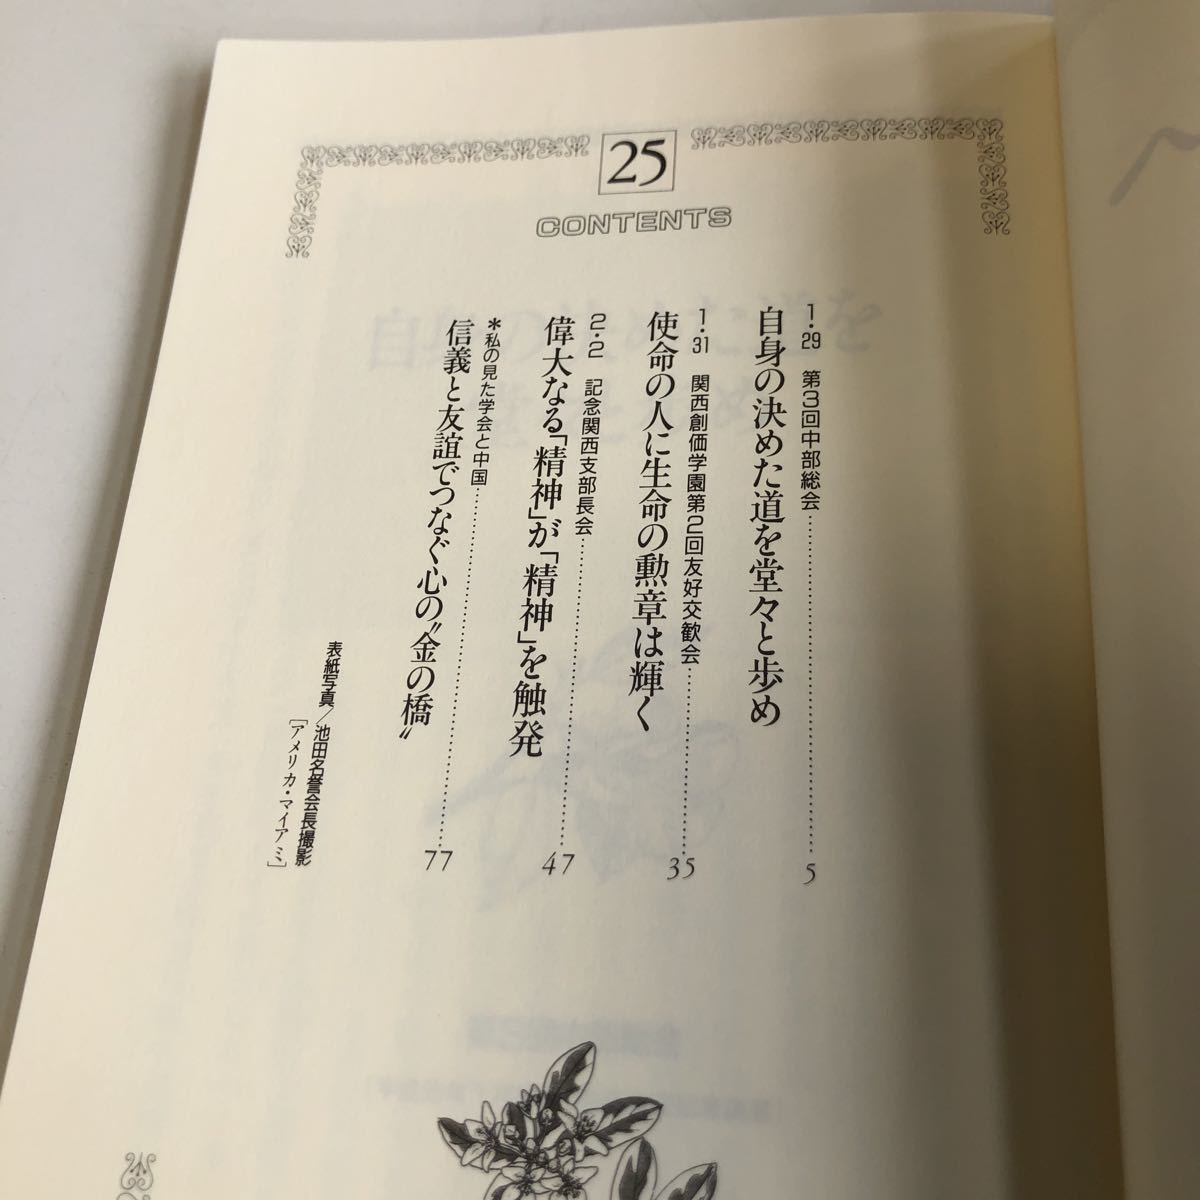 25
CONTENTS
1・29 第3回中部総会……5
自身の決めた道を堂々と歩め
1・31 関西創価学園第2回友好交歓会……35
使命の人に生命の勲章は輝く
2・2 記念関西支部長会……47
偉大なる「精神」が「精神」を触発
＊私の見た学会と中国……77
信義と友誼でつなぐ心の〝金の橋〟
表紙写真／池田名誉会長撮影
［アメリカ・マイアミ］